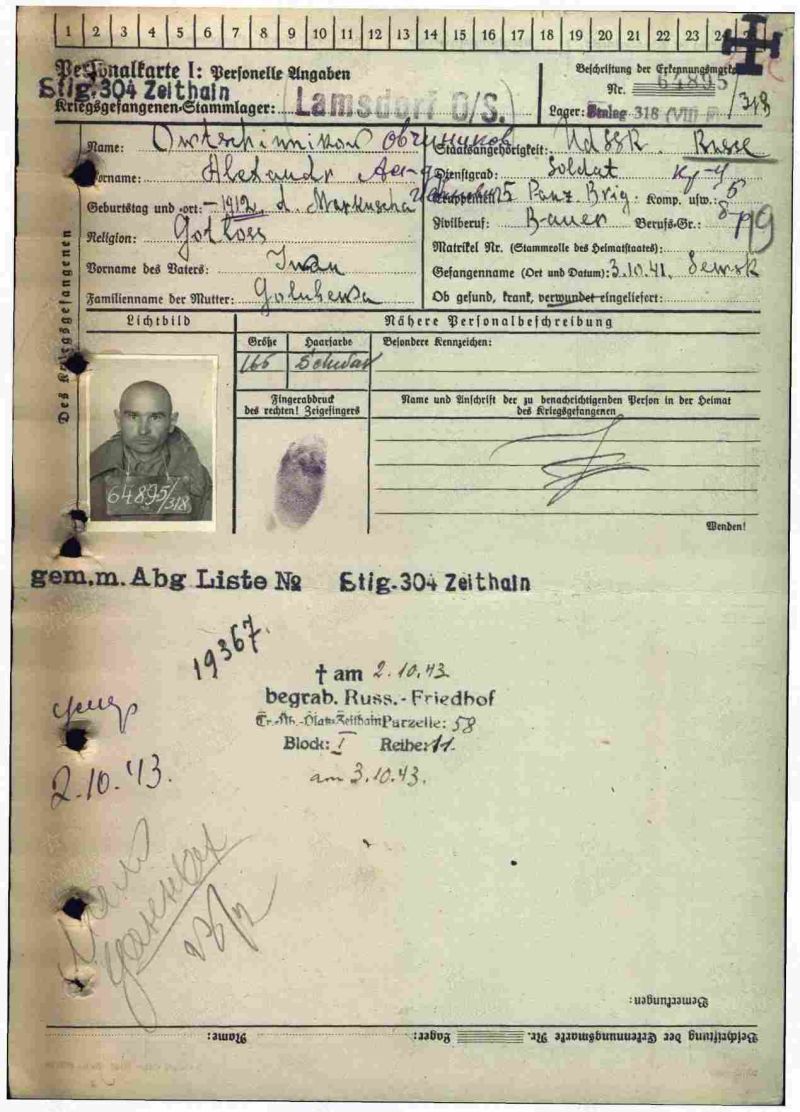 1 2 3 4 5 6 7 8 9 10 11 12 13 14 15 16 17 18 19 20 21 22 23 24
Personalkarte I: Personelle Angaben
Beschriftung der Erkennungsmarke
Stlg. 304 Zeithain
Nr. 64895/318
Kriegsgefangenen-Stammlager: Lamsdorf O/S.
Lager: Stalag 318 (VIII F)
Des Kriegsgefangenen
Name: Owtschinnikow Овчинников
Staatsangehörigkeit: UdSSR. Russe
Vorname: Alexandr
Dienstgrad: Soldat кр-ц
Geburtstag und -ort: -1912. d. Merkuscha
Truppenteil: Panz. Brig. Komp. usw.:
Religion: Gotloss
Zivilberuf: Bauer Berufs-Gr.:
Vorname des Vaters: Iwan
Matrikel Nr. (Stammrolle des Heimatstaates):
Gefangennahme (Ort und Datum): 3.10.41. Sewsk
Familienname der Mutter: Golubewa
Ob gesund, krank, verwundet eingeliefert:
Lichtbild
Nähere Personalbeschreibung
Größe Haarfarbe Besondere Kennzeichen:
166 Schwarz
Fingerabdruck
des rechten! Zeigefingers
Name und Anschrift der zu benachrichtigenden Person in der Heimat
des Kriegsgefangenen
64895/318
Wenden!
gem. m. Abg Liste № Stlg. 304 Zeithain
19367.
† am 2.10.43
begrab. Russ.-Friedhof
Tr.-Üb.-Platz Zeithain Parzelle: 58
Block: I Reihe: 11.
am 3.10.43.
умер
2.10.43.
Bemerkungen:
Name:
Lager:
Beschriftung der Erkennungsmarke Nr.